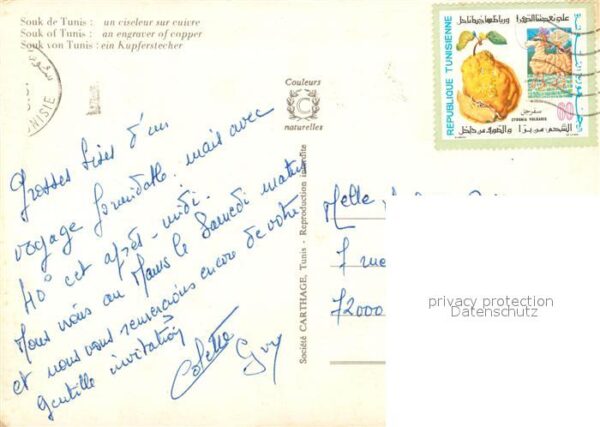 Souk de Tunis : un ciseleur sur cuivre
Souk of Tunis : an engraver of copper
Souk von Tunis : ein Kupferstecher
Couleurs
C
naturelles
Grosses bises d'un
voyage formidable. mais avec
40° cet après-midi.
au Mans le Samedi matin
et nous vous remercions encore de votre
gentille invitation
Colette
Guy
Société CARTHAGE, Tunis - Reproduction interdite
REPUBLIQUE TUNISIENNE
CYDONIA VULGARIS
سفرجل
TUNISIE
Melle
7 rue
72000
privacy protection
Datenschutz